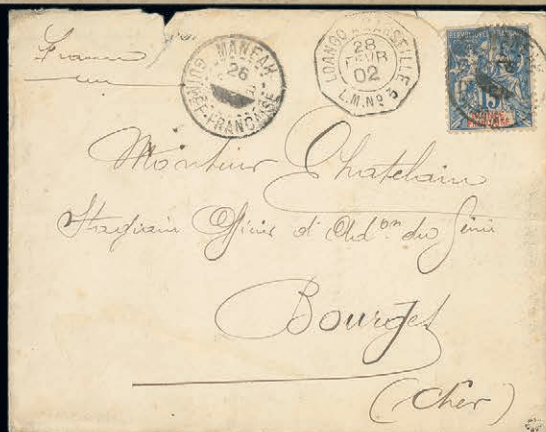 France
MANEAH
26
GUINÉE-FRANÇAISE
LOANGO A MARSEILLE
28
FEVR
02
L.M. No 2
15
Monsieur Chatelain
Stagiaire Officier d'Ad.on du Génie
Bourges
(Cher)